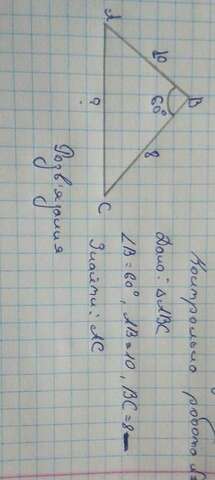 Контрольна робота
Дано: △ABC
∠B = 60°, AB = 10, BC = 8
Знайти: AC
A
10
B
60°
8
C
?
Розв'язання